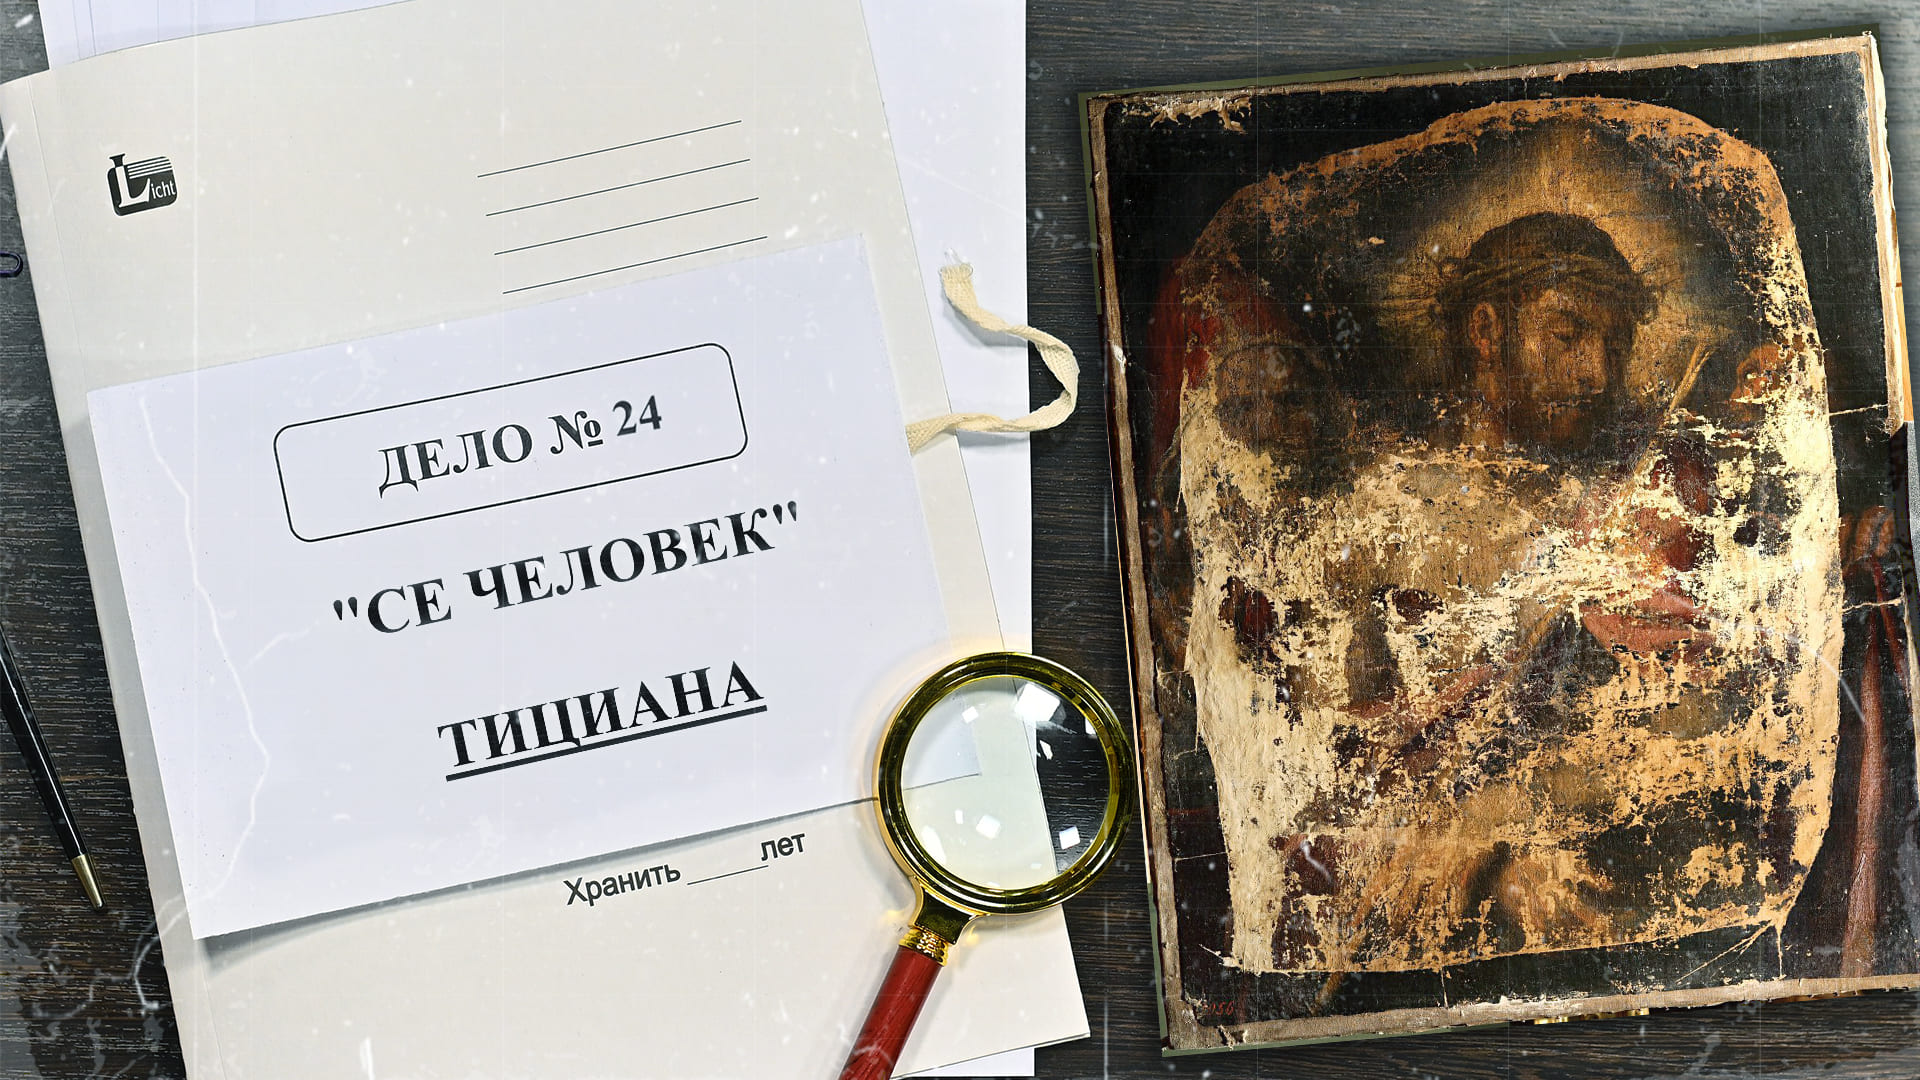 Licht
ДЕЛО № 24
"СЕ ЧЕЛОВЕК"
ТИЦИАНА
Хранить _____лет